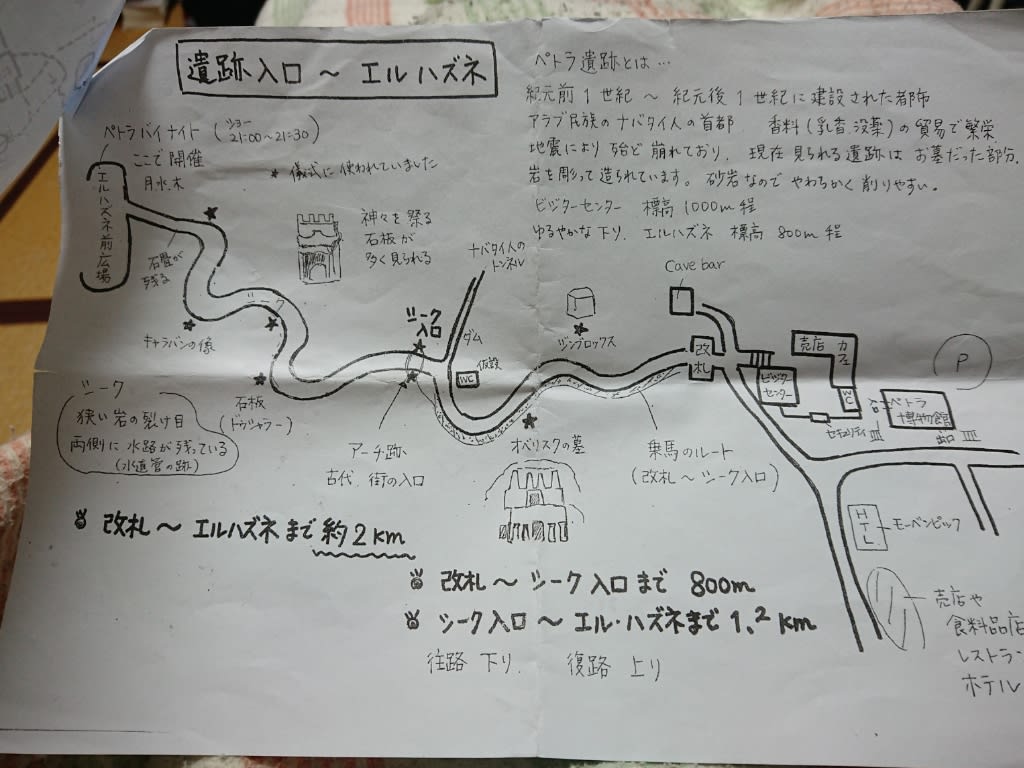 遺跡入口 ～ エルハズネ
ペトラ遺跡とは…
紀元前1世紀 ～ 紀元後1世紀に建設された都市
アラブ民族のナバタイ人の首都. 香料(乳香.没薬)の貿易で繁栄
地震により殆ど崩れており. 現在見られる遺跡は お墓だった部分.
岩を彫って造られています。砂岩なので やわらかく削りやすい。
ビジターセンター 標高1000m程
ゆるやかな下り. エルハズネ 標高 800m程
ペトラバイナイト (ショー 21:00～21:30)
ここで開催
月.水.木
エルハズネ前広場
★ 儀式に使われていました
神々を祭る
石板が
多く見られる
石畳が
残る
シーク
キャラバンの像
石板
(ドゥシャラー)
シーク
入口
ナバタイ人の
トンネル
ダム
仮設
WC
ジンブロックス
Cave bar
改札
ビジター
センター
売店 カフェ
WC
セキュリティ
ペトラ
博物館
P
シーク
狭い岩の裂け目
両側に 水路が残っている
(水道管の跡)
アーチ跡
古代. 街の入口
オベリスクの墓
乗馬のルート
(改札～シーク入口)
HTL
モーベンピック
売店や
食料品店
レストラン
ホテル
改札 ～ エルハズネまで 約2km
改札 ～ シーク入口まで 800m
シーク入口～エル・ハズネまで1.2km
往路 下り. 復路 上り